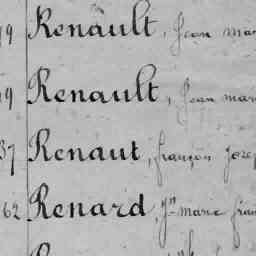 79 Renault, Jean mar
59 Renault, Jean mar
37 Renaut, françois Josep
62 Renard, Jn marie fran